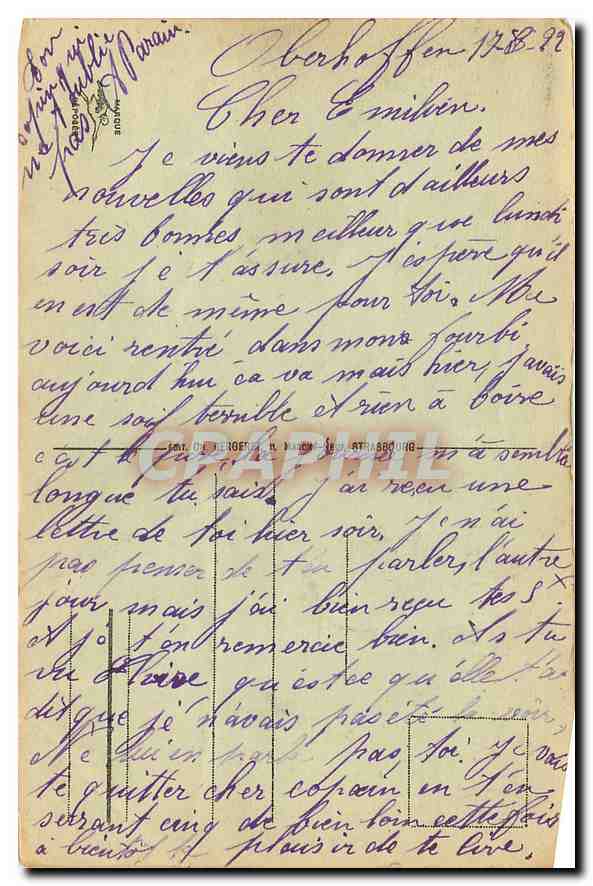 Oberhoffen 17-8-22
Cher Emilien.
Je viens te donner de mes
nouvelles qui sont d'ailleurs
très bonnes meilleur que lundi
soir je t'assure. J'éspère qu'il
en est de même pour toi. Me
voici rentré dans mon fourbi
aujourd'hui ça va mais hier, j'avais
une soif terrible et rien à boire
m'à semblé
longue tu sais. J'ai reçu une
lettre de toi hier soir. Je n'ai
pas penser de t'en parler, l'autre
jour mais j'ai bien reçu tes 5
et je t'en remercie bien. As tu
vu qu'estce qu'élle t'a
dit que je n'avais pas été la voir,
Ne lui en parle pas, toi. Je vais
te quitter cher copain en t'en
serrant cinq de bien loin cette fois
à bientôt le plaisir de te lire.
Ton
copain qui
ne t'oublie
pas
Parain
MARQUE
DÉPOSÉE
EDIT. CH. BERGERET, STRASBOURG
CARTE POSTALE
PHIL